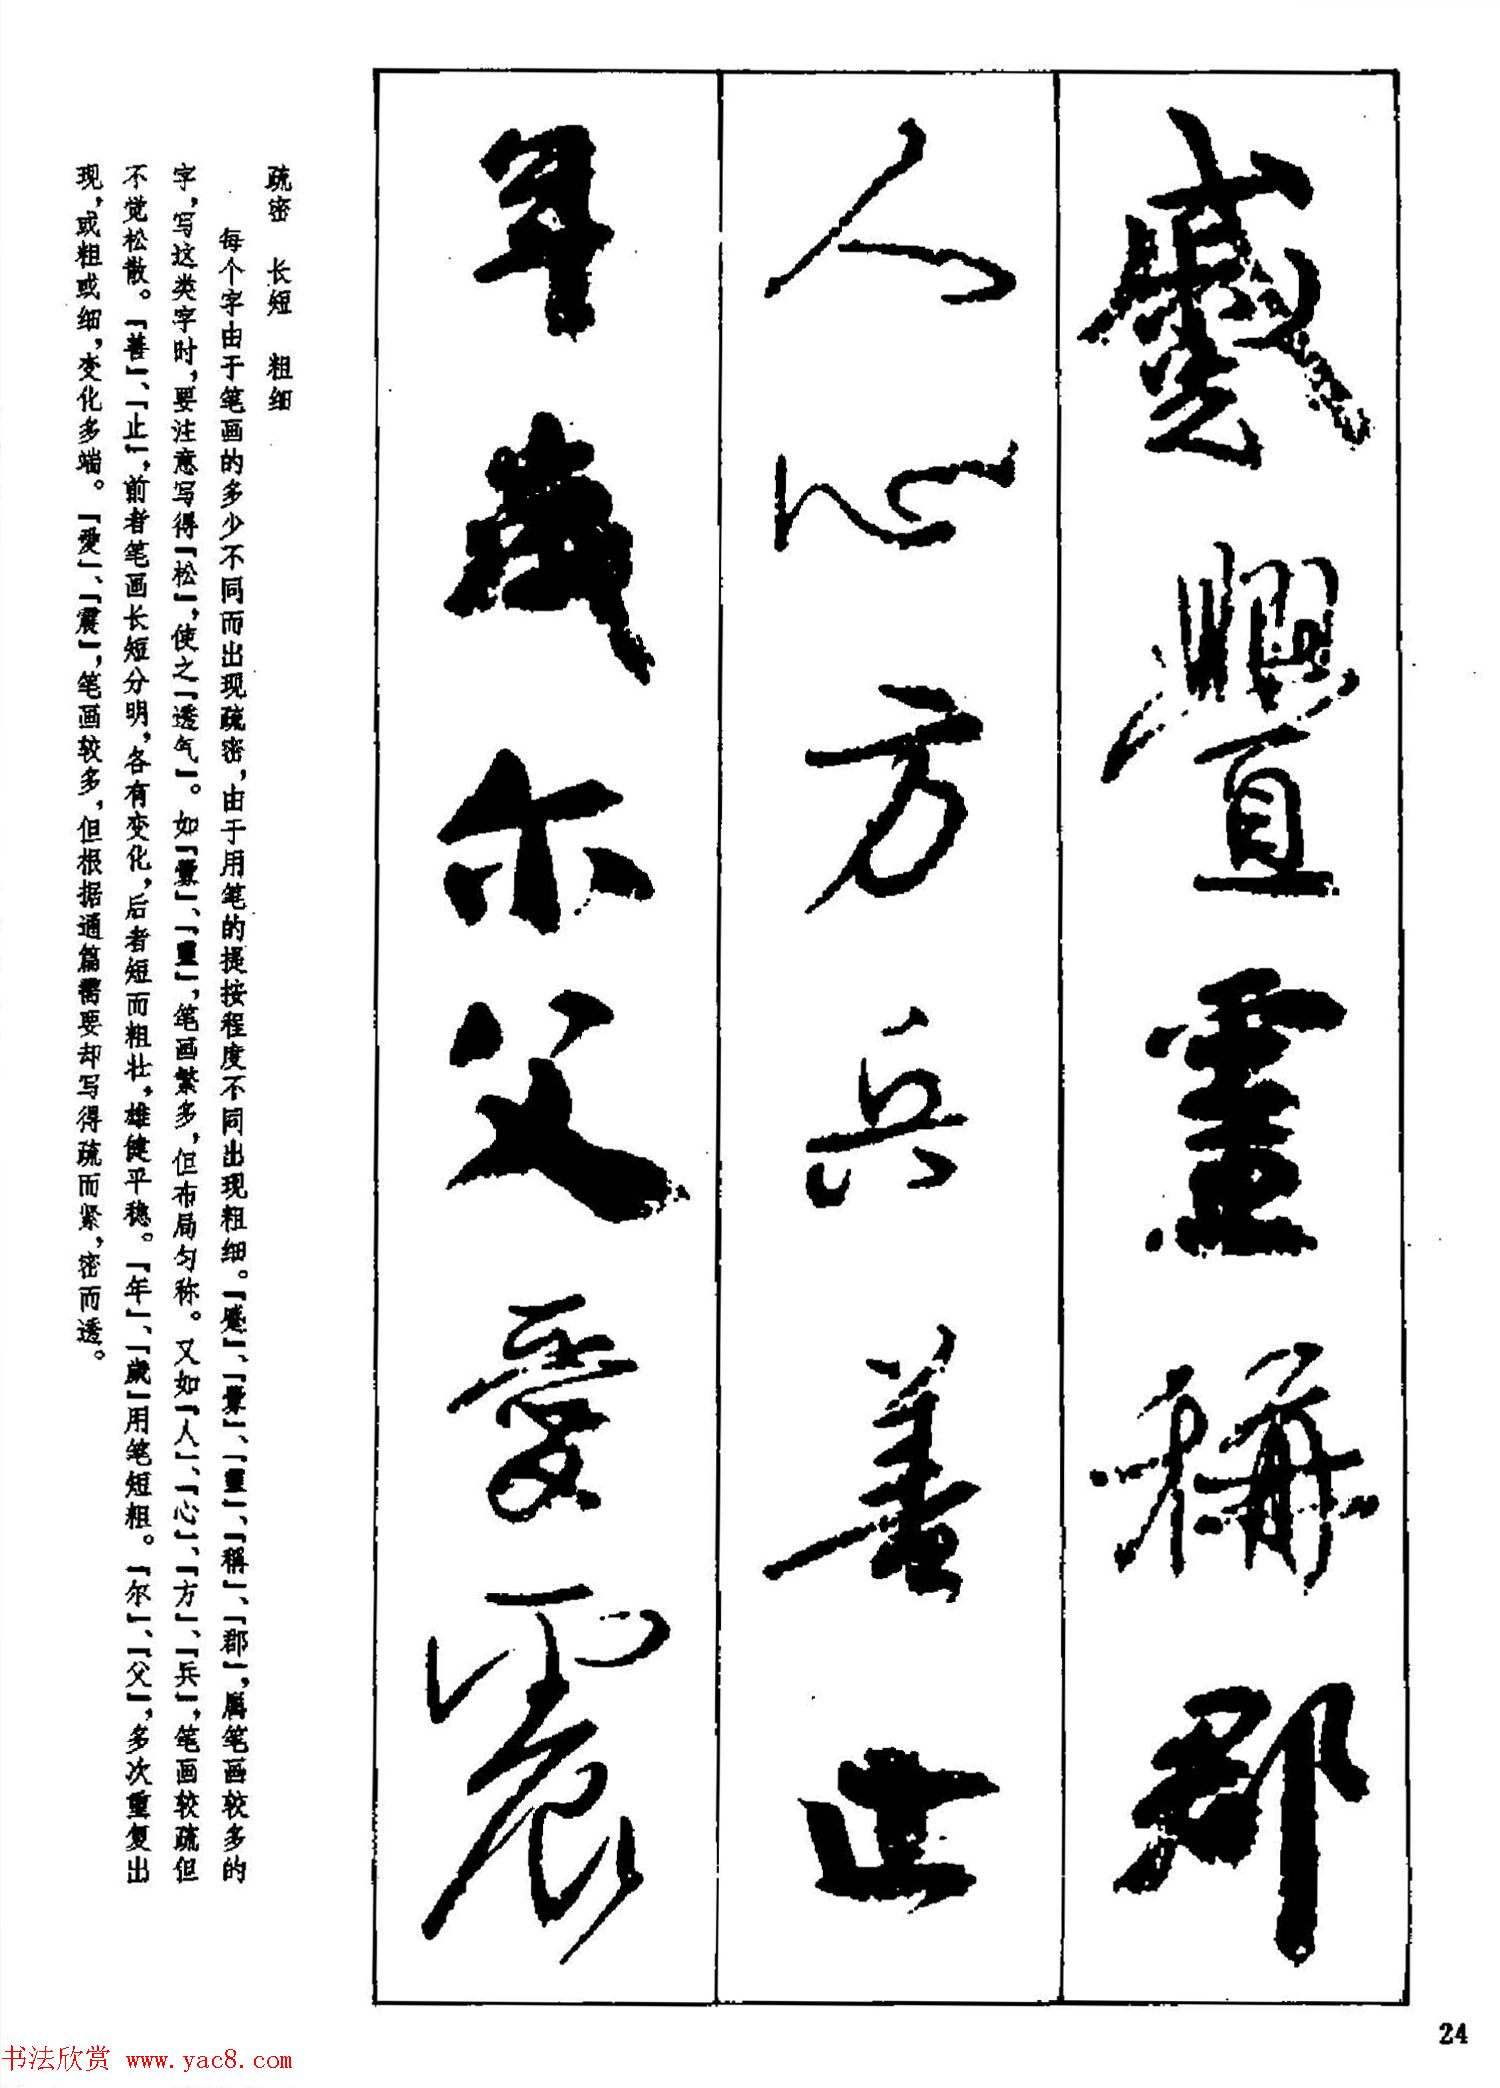 蹙舋靈稱郡
人心方兵善止
年歲尔父爱震
疏密 长短 粗细
每个字由于笔画的多少不同而出现疏密，由于用笔的提按程度不同出现粗细。「蹙」、「舋」、「靈」、「稱」、「郡」，属笔画较多的
字，写这类字时，要注意写得「松」，使之「透气」。如「舋」、「靈」，笔画繁多，但布局匀称。又如「人」、「心」、「方」、「兵」，笔画较疏但
不觉松散。「善」、「止」，前者笔画长短分明，各有变化，后者短而粗壮，雄健平稳。「年」、「歲」用笔短粗。「尔」、「父」，多次重复出
现，或粗或细，变化多端。「爱」、「震」，笔画较多，但根据通篇需要却写得疏而紧，密而透。
24
书法欣赏 www.yac8.com